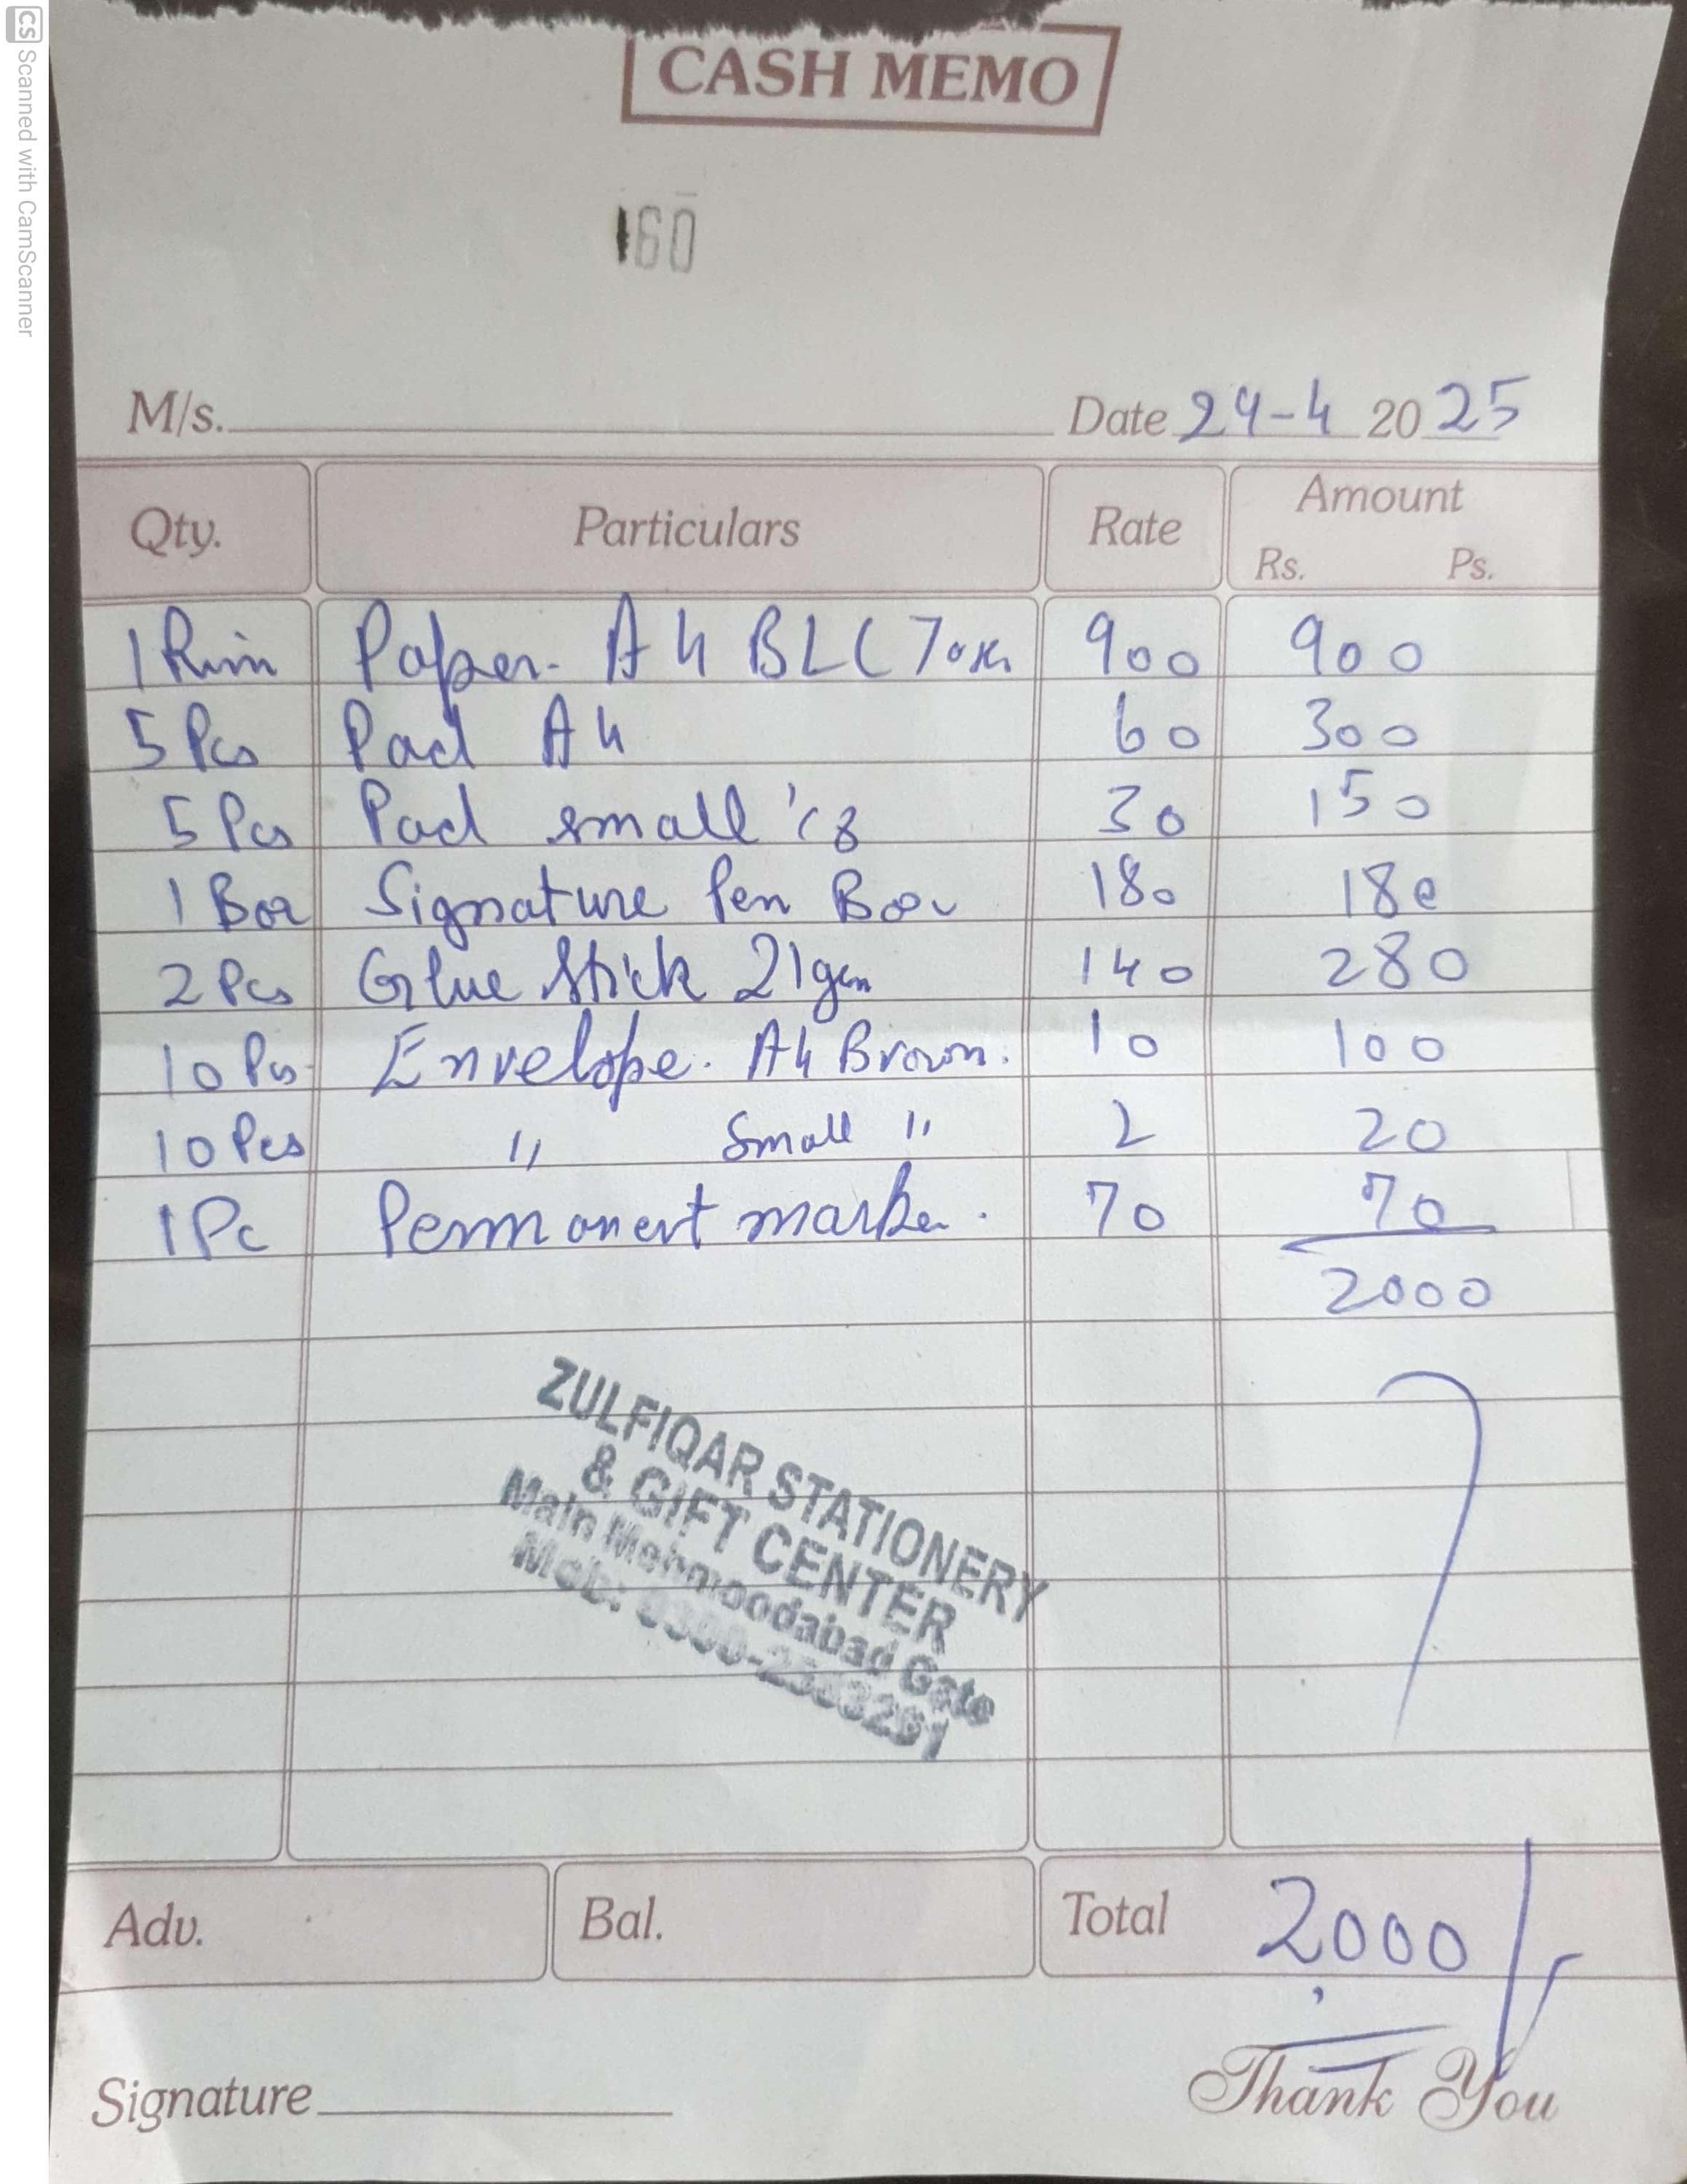 CS Scanned with CamScanner
CASH MEMO
160
M/s. Date 24-4 2025
Qty. Particulars Rate Amount
Rs. Ps.
1 Rim Paper. A4 BLC 900 900
5 Pcs Pad A4 60 300
5 Pcs Pad small 30 150
1 Box Signature Pen Box 180 180
2 Pcs Glue Stick 21gm 140 280
10 Pcs Envelope. A4 Brown. 10 100
10 Pcs " Small " 2 20
1 Pc Permanent marker. 70 70
2000
ZULFIQAR STATIONERY
& GIFT CENTER
Main Mehmoodabad Gate
Mob:
Adv. Bal. Total 2000/-
Signature Thank You